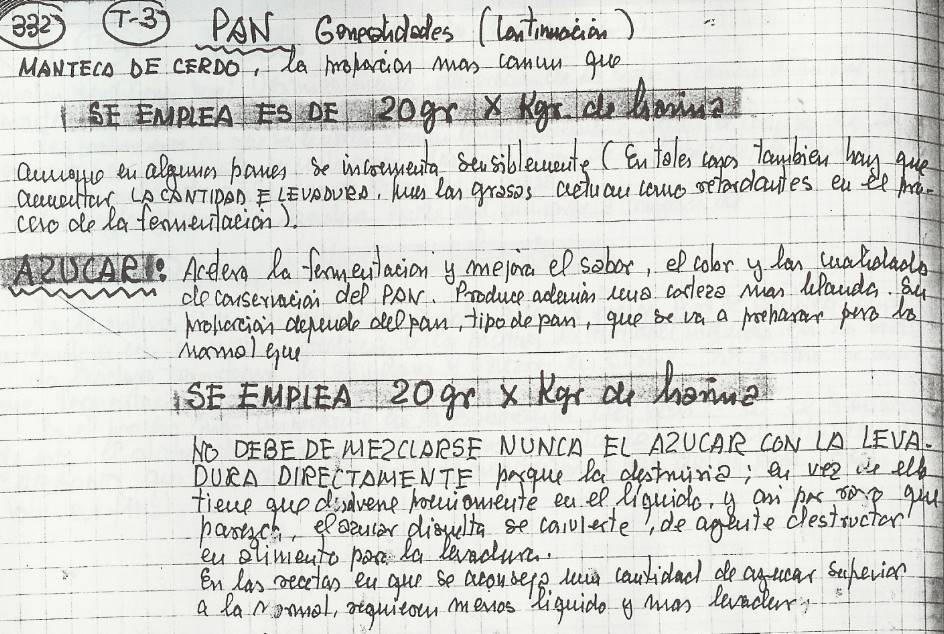 332 T-3 PAN Generalidades (Continuación)
MANTECA DE CERDO, la proporcion mas comun que
SE EMPLEA ES DE 20gr X Kgr. de harina
aunque en algunos panes se incrementa sensiblemente (En tales casos tambien hay que
aumentar LA CANTIDAD E LEVADURA, pues las grasas actuan como retardantes en el pro-
ceso de la fermentacion).
AZUCAR: Acelera la fermentacion y mejora el sabor, el color y las cualidades
de conservación del PAN. Produce además una corteza mas blanda. Su
proporcion depende del pan, tipo de pan, que se va a preparar pero lo
normal que
SE EMPLEA 20gr X Kgr de harina
NO DEBE DE MEZCLARSE NUNCA EL AZUCAR CON LA LEVA-
DURA DIRECTAMENTE porque la destruiria; en vez de ello
tiene que disolverse previamente en el liquido, y asi por raro que
parezca, el azucar disuelta se convierte, de agente destructor
en alimento para la levadura.
En las recetas en que se aconseja una cantidad de azucar superior
a la normal, requieren menos liquido y mas levadura